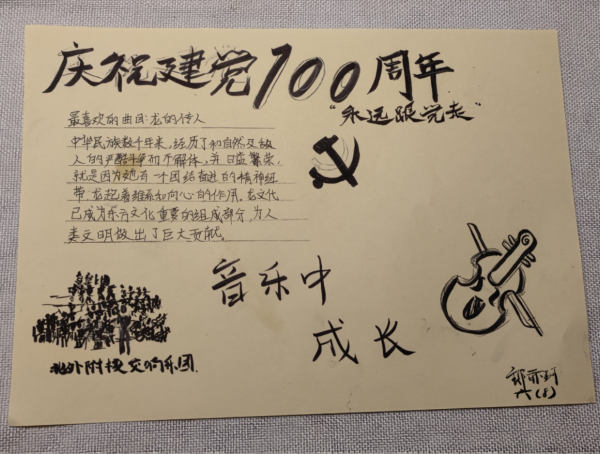 庆祝建党100周年
“永远跟党走”
最喜欢的曲目:龙的传人
中华民族数千年来,经历了和自然及敌
人的严酷斗争而不解体,并日益繁荣,
就是因为她有一个团结奋进的精神纽
带.龙起着维系和向心的作用.龙文化
已成为东方文化重要的组成部分,为人
类文明做出了巨大贡献。
音乐中
成长
北外附校交响乐团.
六(8)